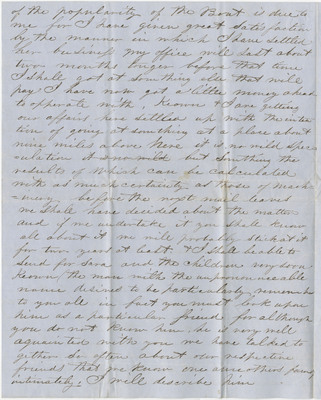 of the popularity of the Boat is due to
me for I have given great satisfaction
by the manner in which I have settled
her business my office will last about
two months longer before that time
I shall got at something else that will
pay I have now got a little money ahead
to opperate with Keown & I are getting
our affairs here settled up with the inten
tion of going at something at a place about
nine miles above here it is no wild spec
ulation but something the
results of which can be calculated
with as much certainty as those of mach
inery before the next mail leaves
we shall have decided about the matter
and if we undertake it you shall know
all about it we will probably stick at it
for two years at least & I shall be able to
send for Sara and the children very soon
Keown the man with the
name desires to be particularly remembr
to you all in fact you must look upon
him as a particular friend for although
you do not know him he is very well
aquainted with you we have talked to
gether so often about our respective
friends that we know one anothers family
intimately. I will describe him